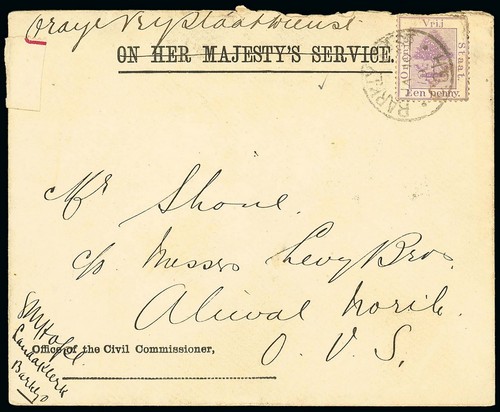 Oranje Vrystaat Dienst
ON HER MAJESTY'S SERVICE.
Vrij
Staat.
Oranje
Een penny.
BARK
Mr Shone.
c/o Messrs Levy Bros.
Aliwal North.
O. V. S.
Landdklerk
Office of the Civil Commissioner,